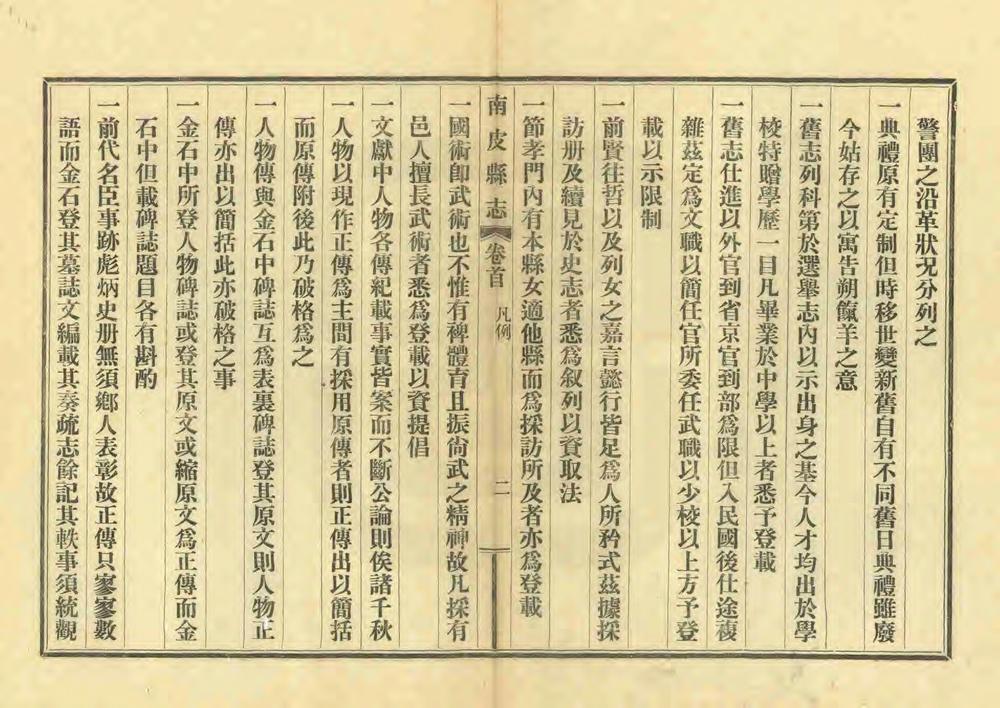 警團之沿革狀況分列之
一典禮原有定制但時移世變新舊自有不同舊日典禮雖廢
今姑存之以寓告朔餼羊之意
一舊志列科第於選舉志內以示出身之基今人才均出於學
校特贈學歷一目凡畢業於中學以上者悉予登載
一舊志仕進以外官到省京官到部爲限但入民國後仕途複
雜茲定爲文職以簡任官所委任武職以少校以上方予登
載以示限制
一前賢往哲以及列女之嘉言懿行皆足爲人所矜式茲據採
訪册及續見於史志者悉爲叙列以資取法
一節孝門內有本縣女適他縣而爲採訪所及者亦爲登載
南皮縣志 卷首 凡例 二
一國術卽武術也不惟有裨體育且振尙武之精神故凡採有
邑人擅長武術者悉爲登載以資提倡
一文獻中人物各傳紀載事實皆案而不斷公論則俟諸千秋
一人物以現作正傳爲主間有採用原傳者則正傳出以簡括
而原傳附後此乃破格爲之
一人物傳與金石中碑誌互爲表裏碑誌登其原文則人物正
傳亦出以簡括此亦破格之事
一金石中所登人物碑誌或登其原文或縮原文爲正傳而金
石中但載碑誌題目各有斟酌
一前代名臣事跡彪炳史册無須鄉人表彰故正傳只寥寥數
語而金石登其墓誌文編載其奏疏志餘記其軼事須統觀